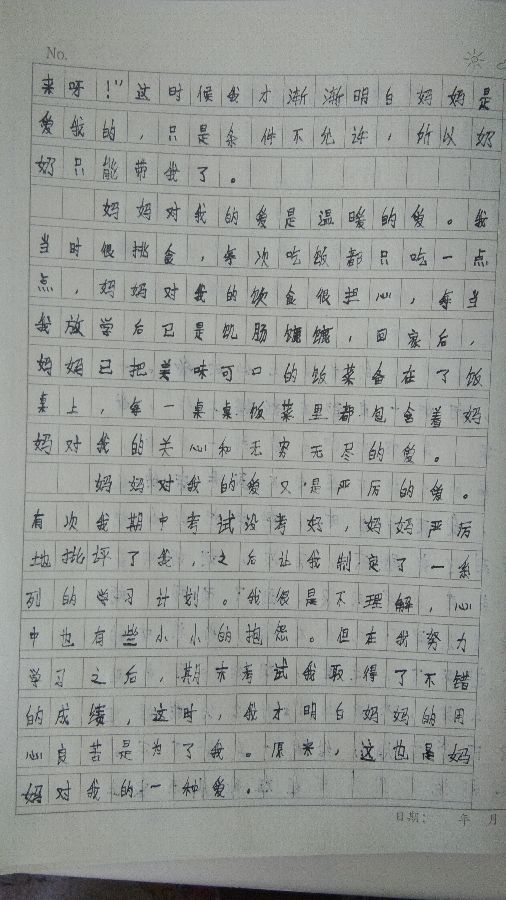 No.
来呀！”这时候我才渐渐明白妈妈是
爱我的，只是条件不允许，所以奶
奶只能带我了。
妈妈对我的爱是温暖的爱。我
当时很挑食，每次吃饭都只吃一点
点，妈妈对我的饮食很担心，每当
我放学后已是饥肠辘辘，回家后，
妈妈已把美味可口的饭菜备在了饭
桌上，每一桌桌饭菜里都包含着妈
妈对我的关心和无穷无尽的爱。
妈妈对我的爱又是严厉的爱。
有次我期中考试没考好，妈妈严厉
地批评了我，之后让我制定了一系
列的学习计划。我很是不理解，心
中也有些小小的抱怨。但在我努力
学习之后，期末考试我取得了不错
的成绩，这时，我才明白妈妈的用
心良苦是为了我。原来，这也是妈
妈对我的一种爱。
日期： 年 月